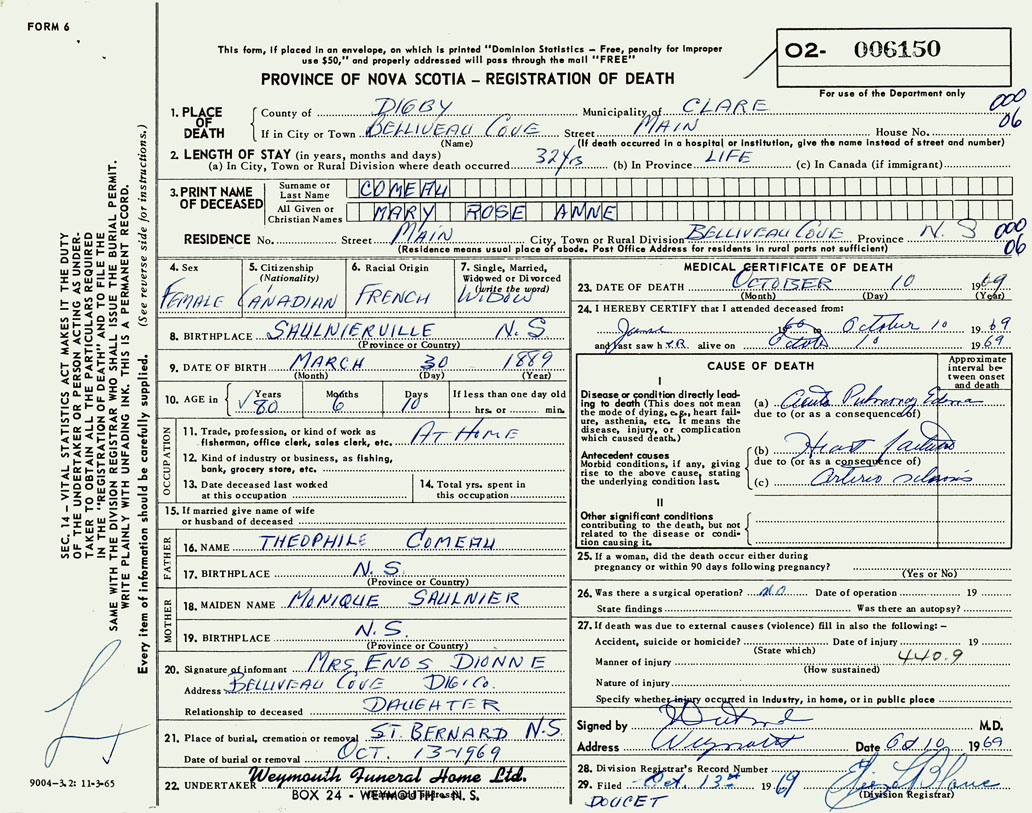 FORM 6
This form, if placed in an envelope, on which is printed "Dominion Statistics – Free, penalty for improper
use $50," and properly addressed will pass through the mail "FREE"
PROVINCE OF NOVA SCOTIA – REGISTRATION OF DEATH
O2- 006150
For use of the Department only
000
06
1. PLACE OF DEATH
County of DIGBY Municipality of CLARE
If in City or Town BELLIVEAU COVE Street MAIN House No.
(Name) (If death occurred in a hospital or institution, give the name instead of street and number)
2. LENGTH OF STAY (in years, months and days)
(a) In City, Town or Rural Division where death occurred 32 yrs (b) In Province LIFE (c) In Canada (if immigrant)
3. PRINT NAME OF DECEASED
Surname or Last Name COMEAU
All Given or Christian Names MARY ROSE ANNE
RESIDENCE No. Street MAIN City, Town or Rural Division BELLIVEAU COVE Province N. S
(Residence means usual place of abode. Post Office Address for residents in rural parts not sufficient)
000
06
4. Sex
FEMALE
5. Citizenship
(Nationality)
CANADIAN
6. Racial Origin
FRENCH
7. Single, Married,
Widowed or Divorced
(write the word)
WIDOW
8. BIRTHPLACE SAULNIERVILLE N.S
(Province or Country)
9. DATE OF BIRTH MARCH 30 1889
(Month) (Day) (Year)
10. AGE in
Years Months Days If less than one day old
80 6 10 hrs. or min.
OCCUPATION
11. Trade, profession, or kind of work as
fisherman, office clerk, sales clerk, etc. AT HOME
12. Kind of industry or business, as fishing,
bank, grocery store, etc.
13. Date deceased last worked
at this occupation
14. Total yrs. spent in
this occupation
15. If married give name of wife
or husband of deceased
FATHER
16. NAME THEOPHILE COMEAU
17. BIRTHPLACE N.S.
(Province or Country)
MOTHER
18. MAIDEN NAME MONIQUE SAULNIER
19. BIRTHPLACE N.S.
(Province or Country)
20. Signature of informant MRS ENOS DIONNE
Address BELLIVEAU COVE DIG. CO.
Relationship to deceased DAUGHTER
21. Place of burial, cremation or removal ST. BERNARD N.S.
Date of burial or removal OCT. 13-1969
22. UNDERTAKER Weymouth Funeral Home Ltd.
BOX 24 - WEYMOUTH - N. S.
MEDICAL CERTIFICATE OF DEATH
23. DATE OF DEATH OCTOBER 10 1969
(Month) (Day) (Year)
24. I HEREBY CERTIFY that I attended deceased from:
June 60 to October 10 1969
and last saw h ER alive on October 10 1969
CAUSE OF DEATH
Approximate
interval be-
tween onset
and death
I
Disease or condition directly lead-
ing to death (This does not mean
the mode of dying, e.g., heart fail-
ure, asthenia, etc. It means the
disease, injury, or complication
which caused death.)
(a) Acute Pulmonary Edema
due to (or as a consequence of)
Antecedent causes
Morbid conditions, if any, giving
rise to the above cause, stating
the underlying condition last.
(b) Heart failure
due to (or as a consequence of)
(c) Arterio sclerosis
II
Other significant conditions
contributing to the death, but not
related to the disease or condi-
tion causing it.
25. If a woman, did the death occur either during
pregnancy or within 90 days following pregnancy?
(Yes or No)
26. Was there a surgical operation? NO Date of operation 19
State findings Was there an autopsy?
27. If death was due to external causes (violence) fill in also the following: –
Accident, suicide or homicide? Date of injury 19
(State which)
Manner of injury 440.9
(How sustained)
Nature of injury
Specify whether injury occurred in Industry, in home, or in public place
Signed by M.D.
Address Weymouth Date Oct 10 1969
28. Division Registrar's Record Number
29. Filed Oct. 13th 1969
(Division Registrar)
DOUCET
SEC. 14 – VITAL STATISTICS ACT MAKES IT THE DUTY
OF THE UNDERTAKER OR PERSON ACTING AS UNDER-
TAKER TO OBTAIN ALL THE PARTICULARS REQUIRED
IN THE "REGISTRATION OF DEATH" AND TO FILE THE
SAME WITH THE DIVISION REGISTRAR WHO SHALL ISSUE THE BURIAL PERMIT.
WRITE PLAINLY WITH UNFADING INK. THIS IS A PERMANENT RECORD.
Every item of information should be carefully supplied. (See reverse side for instructions.)
9004-3.2: 11-3-65